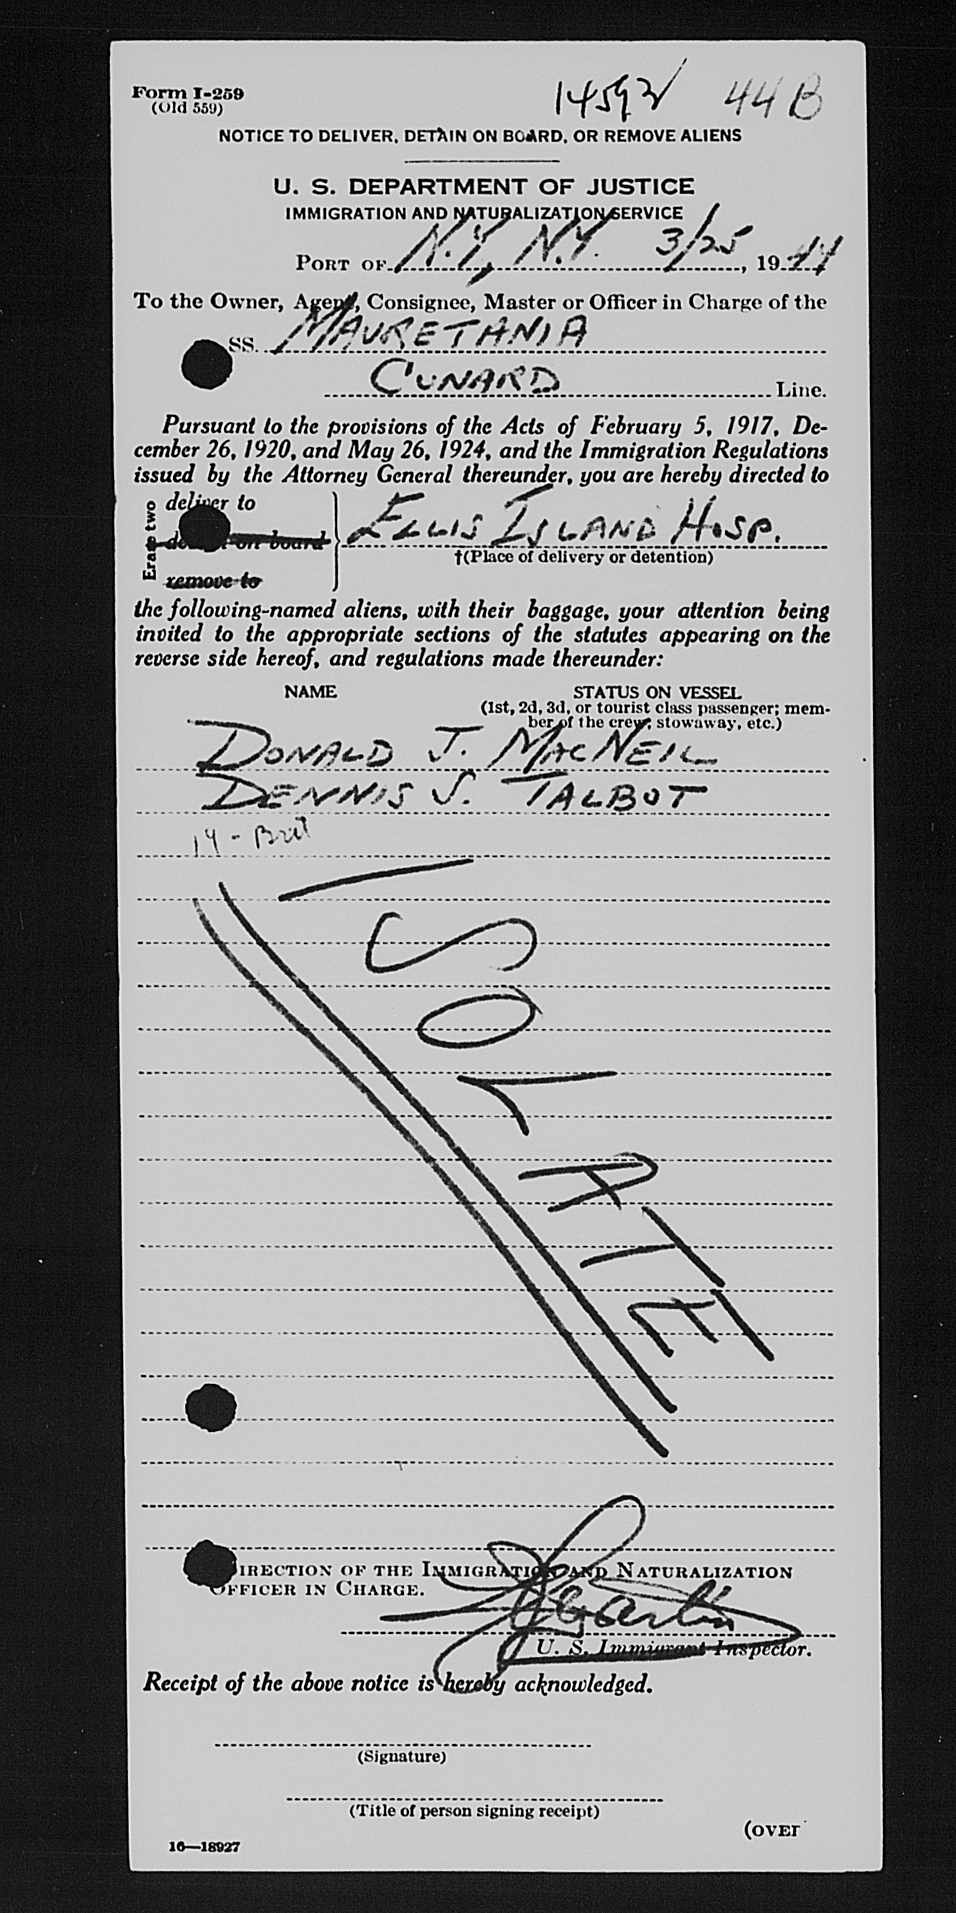 Form I-259
(Old 559)
14592 44B
NOTICE TO DELIVER, DETAIN ON BOARD, OR REMOVE ALIENS
U. S. DEPARTMENT OF JUSTICE
IMMIGRATION AND NATURALIZATION SERVICE
PORT OF N.Y., N.Y. 3/25, 1944
To the Owner, Agent, Consignee, Master or Officer in Charge of the
SS. MAURETANIA
CUNARD Line.
Pursuant to the provisions of the Acts of February 5, 1917, De-
cember 26, 1920, and May 26, 1924, and the Immigration Regulations
issued by the Attorney General thereunder, you are hereby directed to
Erase two
deliver to
detain on board
remove to
ELLIS ISLAND HOSP.
†(Place of delivery or detention)
the following-named aliens, with their baggage, your attention being
invited to the appropriate sections of the statutes appearing on the
reverse side hereof, and regulations made thereunder:
NAME STATUS ON VESSEL
(1st, 2d, 3d, or tourist class passenger; mem-
ber of the crew, stowaway, etc.)
DONALD J. MACNEIL
DENNIS J. TALBOT
14 - Brit
ISOLATE
DIRECTION OF THE IMMIGRATION AND NATURALIZATION
OFFICER IN CHARGE.
U. S. Immigrant Inspector.
Receipt of the above notice is hereby acknowledged.
(Signature)
(Title of person signing receipt)
(OVER
16—18927